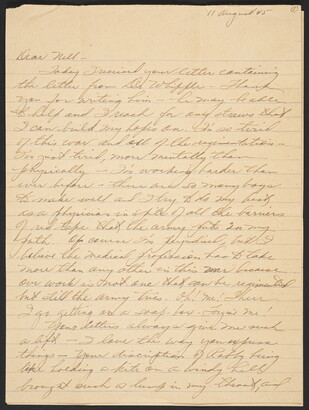 11 August 45
Dear Nell -
Today I received your letter containing
the letter from Dr Whipple - Thank
you for writing him - he may be able
to help and I reach for any straws that
I can build my hopes on. I'm so tired
of this war and all of the regimentation -
I'm just tired, more mentally than
physically - I'm working harder than
ever before - there are so many boys
to make well and I try to do my best
as a physician in spite of all the barriers
of red tape that the army puts in my
path. Of course I'm prejudiced, but I
believe the medical profession has to take
more than any other in this war because
our work is not one that can be regimented
but still the army tries. Oh, me! There
I go getting on a soap box -
Your letters always give me such
a lift - I love the way you express
things - your description of being
holding a kite on a windy hill
brought such a lump in my throat, and